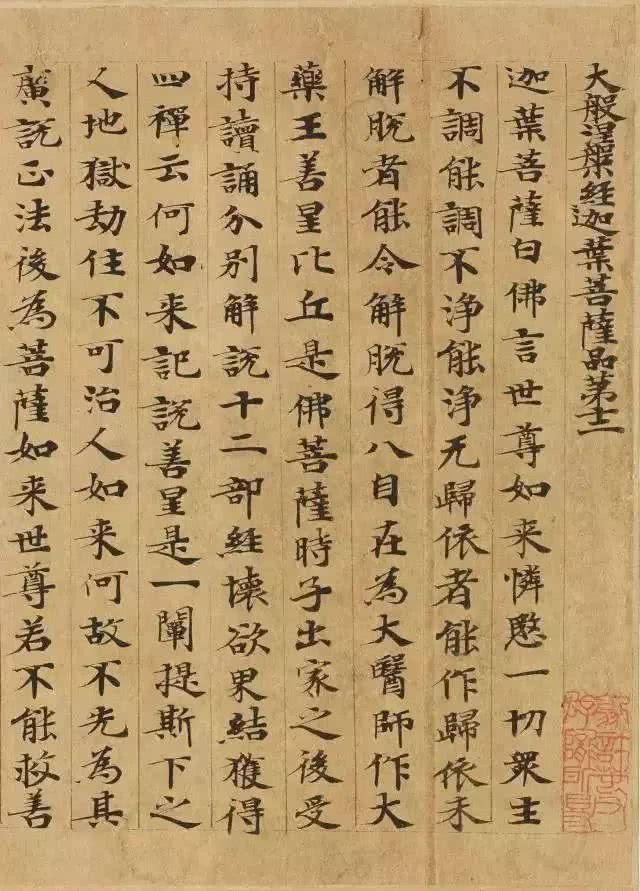 大般涅槃經迦葉菩薩品苐十二
迦葉菩薩白佛言世尊如来憐愍一切衆生
不調能調不浄能浄无歸依者能作歸依未
解脱者能令解脱得八自在為大醫師作大
藥王善星比丘是佛菩薩時子出家之後受
持讀誦分别解説十二部經壞欲界結獲得
四禪云何如来記説善星是一闡提斯下之
人地獄劫住不可治人如来何故不先為其
廣説正法後為菩薩如来世尊若不能救善